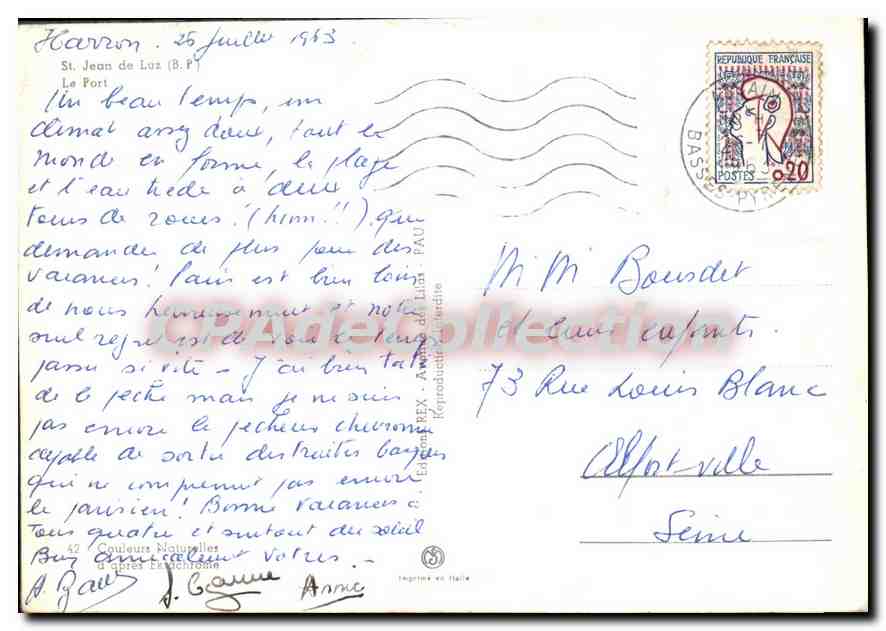 Harron. 26 Juillet 1963
St. Jean de Luz (B. P)
Le Port
Un beau temps, un
climat assez doux, tout le
monde en forme, la plage
et l'eau tiède à deux
tours de roues! (hum!!). que
demander de plus pour des
vacances! Paris est bien loin
de nous heureusement et notre
seul regret est de voir le temps
passer si vite - J'ai bien
de la pêche mais je ne suis
pas encore le pêcheur chevronné
capable de sortir des truites basques
qui ne comprennent pas encore
le parisien! Bonne vacances à
tous quatre et surtout du soleil
Bien amicalement vôtres -
42 Couleurs Naturelles
d'après Ektachrome
Anne
Editions REX - Avenue des Lilas - PAU
Reproduction Interdite
Imprimé en Italie
REPUBLIQUE FRANÇAISE
POSTES 0,20
BASSES-PYRÉ
Mr Mr Bourdet
et leurs enfants.
73 Rue Louis Blanc
Alfort-ville
Seine
CPAdeCollection